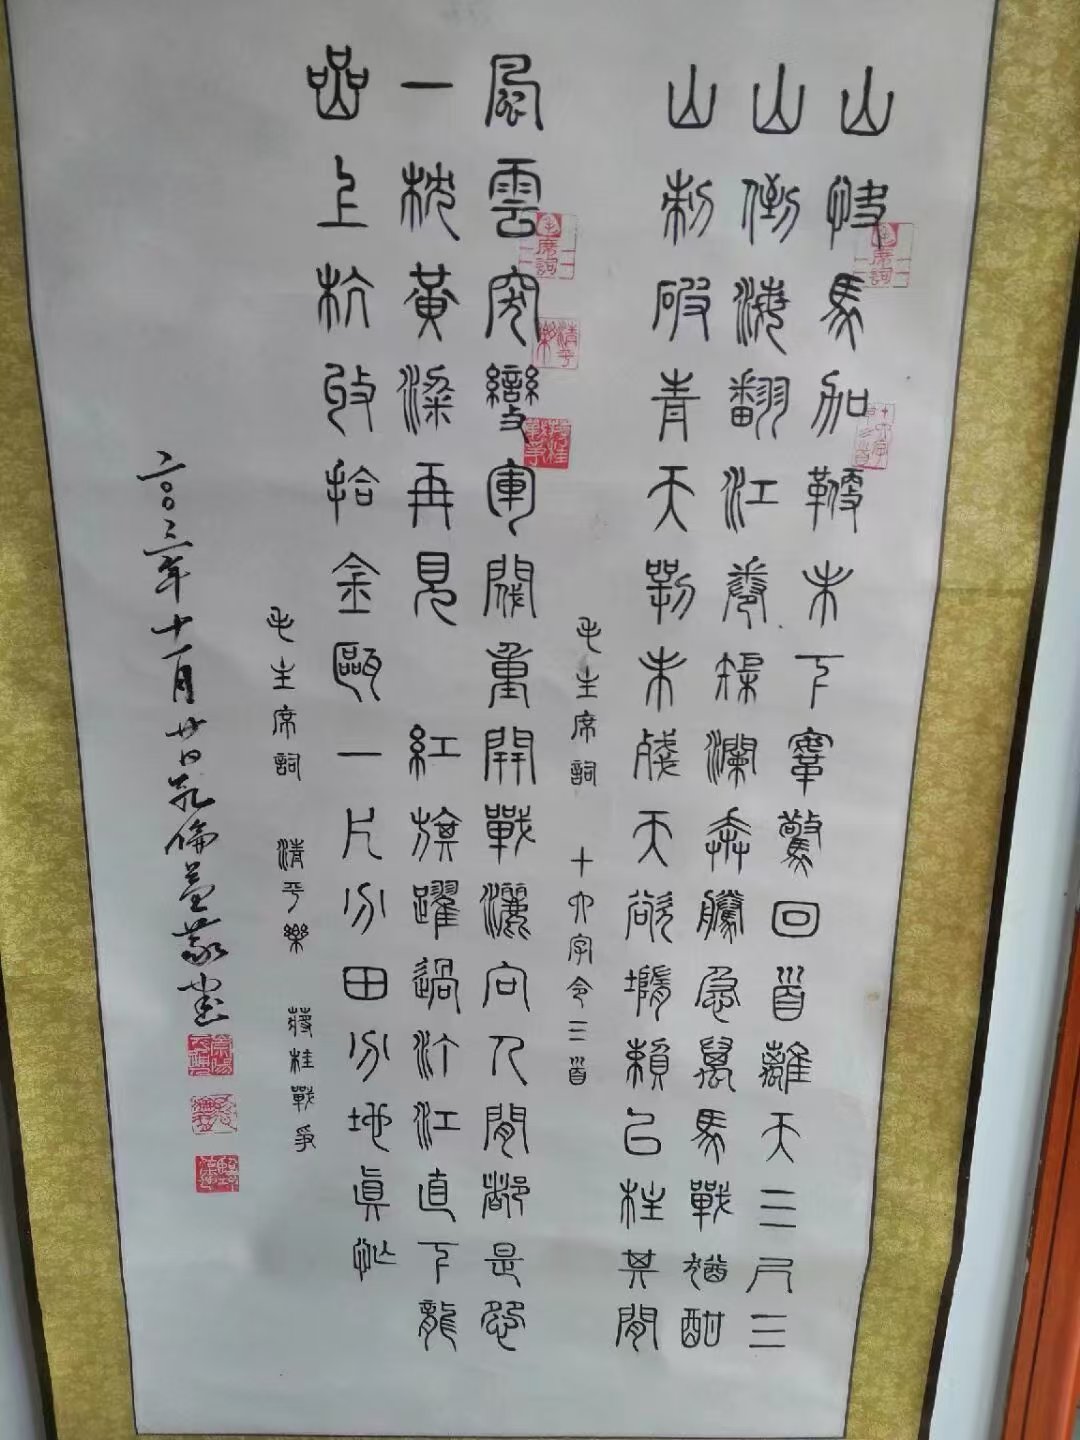 山快馬加鞭未下鞍驚回首離天三尺三
山倒海翻江卷巨瀾奔騰急萬馬戰猶酣
山刺破青天鍔未殘天欲墮賴以柱其間
毛主席詞 十六字令三首
風雲突變軍閥重開戰灑向人間都是怨
一枕黃粱再見 紅旗躍過汀江直下龍
岩上杭收拾金甌一片分田分地真忙
毛主席詞 清平樂 蔣桂戰爭
二〇〇三年十一月廿日
主席詞
主席詞
清平樂
蔣桂戰爭